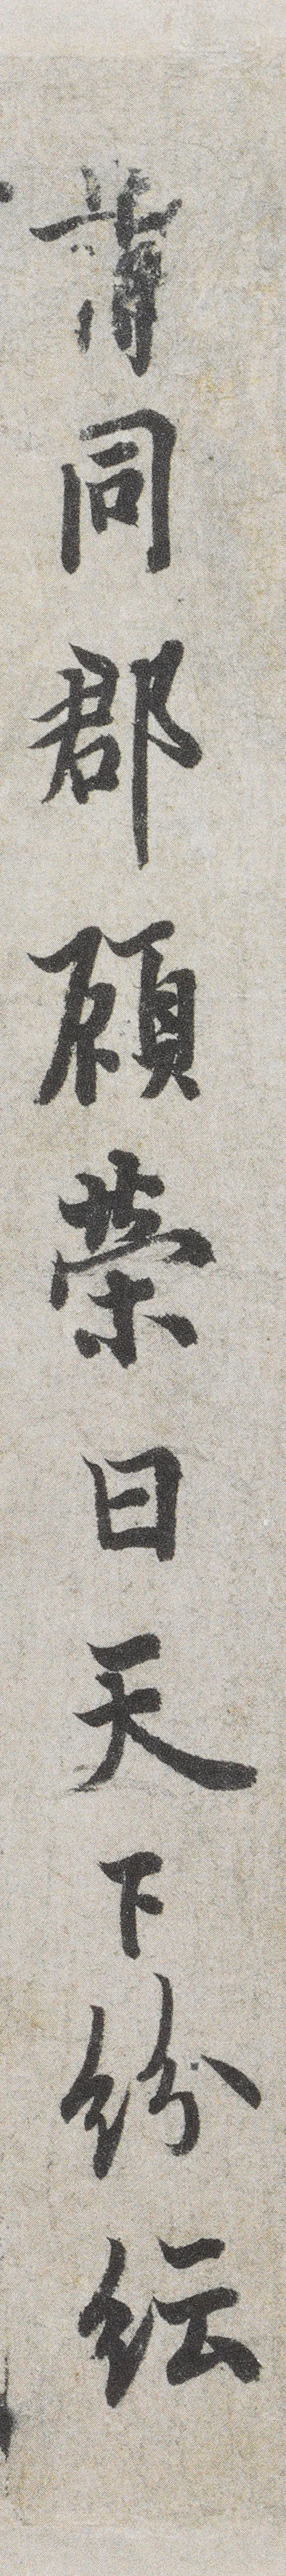 謂同郡顧榮曰天下紛紜